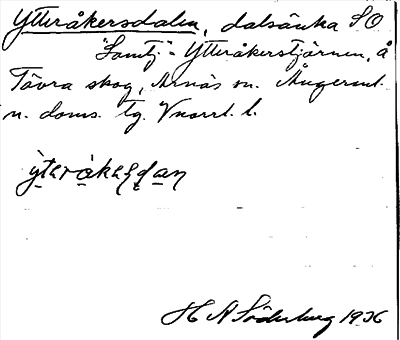 Ytteråkersdalen, dalsänka SO
"Somtj"- Ytteråkerstjärnen, å
Tävra skog, Arnäs sn. Ångerml.
n. doms. tg. Vnorrl. l.
H A Söderberg 1936